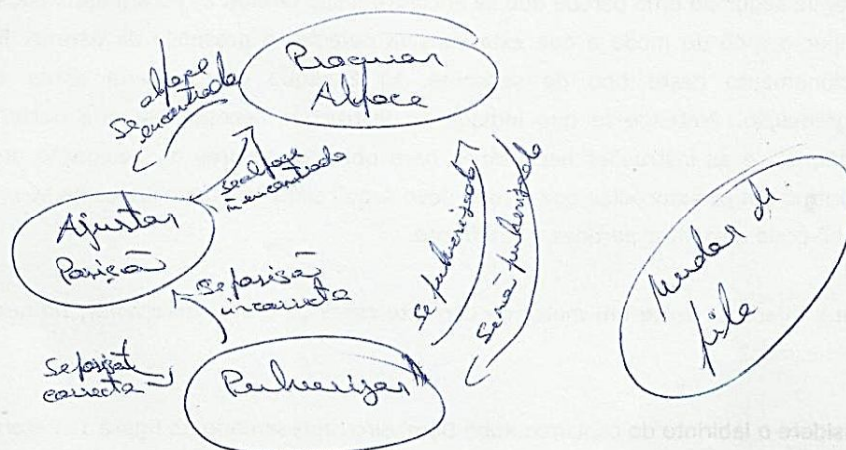 Procurar
Alface
se alface
encontrada
se alface
encontrada
Ajustar
Posição
se posição
incorrecta
se posição
correcta
Pulverizar
se pulverizado
se não pulverizado
mudar de
fila